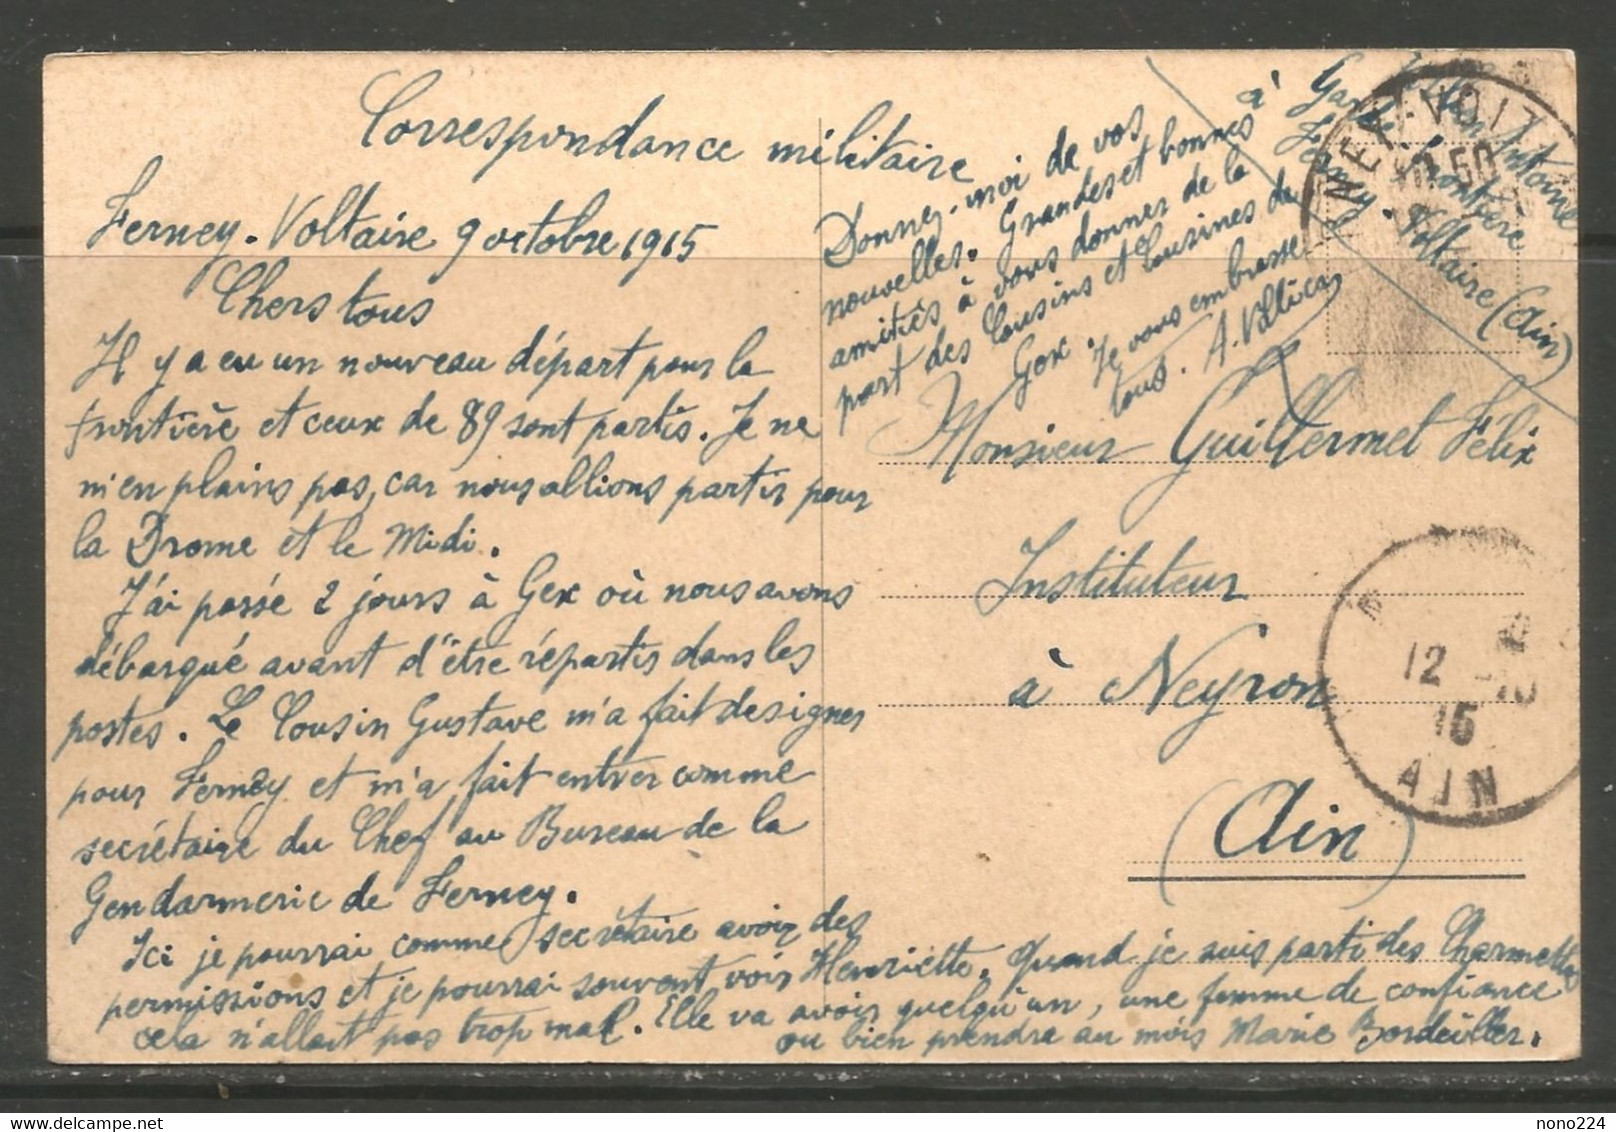 Correspondance militaire
Ferney-Voltaire 9 octobre 1915
Chers tous
Il y a eu un nouveau départ pour la
frontière et ceux de 89 sont partis. Je ne
m'en plains pas, car nous allions partir pour
la Drome et le Midi.
J'ai passé 2 jours à Gex où nous avons
débarqué avant d'être répartis dans les
postes. Le Cousin Gustave m'a fait designer
pour Ferney et m'a fait entrer comme
secrétaire du Chef au Bureau de la
Gendarmerie de Ferney.
Ici je pourrai comme secrétaire avoir des
permissions et je pourrai souvent voir Henriette. Quand je suis parti des Charmettes
cela n'allait pas trop mal. Elle va avoir quelqu'un, une femme de confiance
ou bien prendre au mois Marie Bordeiller.
Donnez-moi de vos
nouvelles. Grandes et bonnes
amitiés à vous donner de la
part des Cousins et Cousines de
Gex. Je vous embrasse
tous. A. Vollicar
Antoine
Garde frontière
à Ferney-Voltaire (Ain)
Monsieur Guillermet Félix
Instituteur
à Neyron
(Ain)
NEY-VOLT
12 -10
15
AIN
nono224